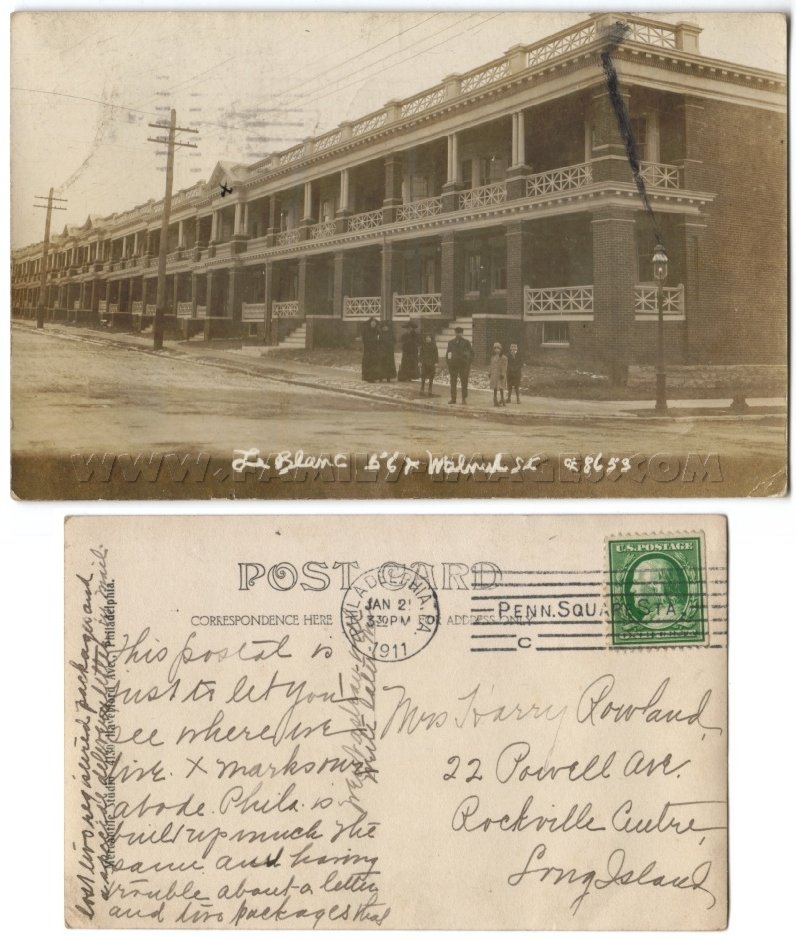 Le Blanc 56 & Walnut St 8653
WWW.FAMILY-IMAGES.COM
POST CARD
CORRESPONDENCE HERE OR ADDRESS ONLY
PHILADELPHIA, PA.
JAN 21
330 PM
1911
PENN. SQUARE STA.
C
U.S. POSTAGE
This postal is
just to let you
see where we
live. X marks our
abode. Phila. is
built up much the
same and having
trouble about a letter
and two packages that
lost two registered packages and
Haverford Ave., Philadelphia.
Mrs Harry Rowland
22 Powell Ave.
Rockville Centre,
Long Island